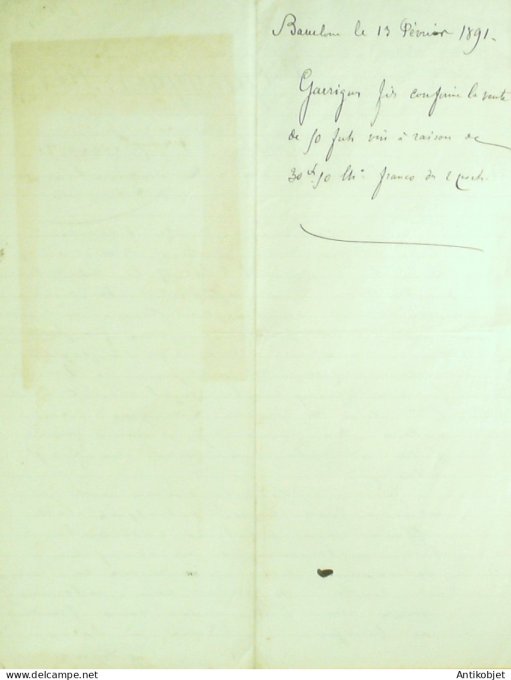 Barcelone le 13 Février 1891.
Garrigus fils confirme la vente
de 50 futs vin à raison de
30 f 50 franco
delcampe.net
Antikobjet